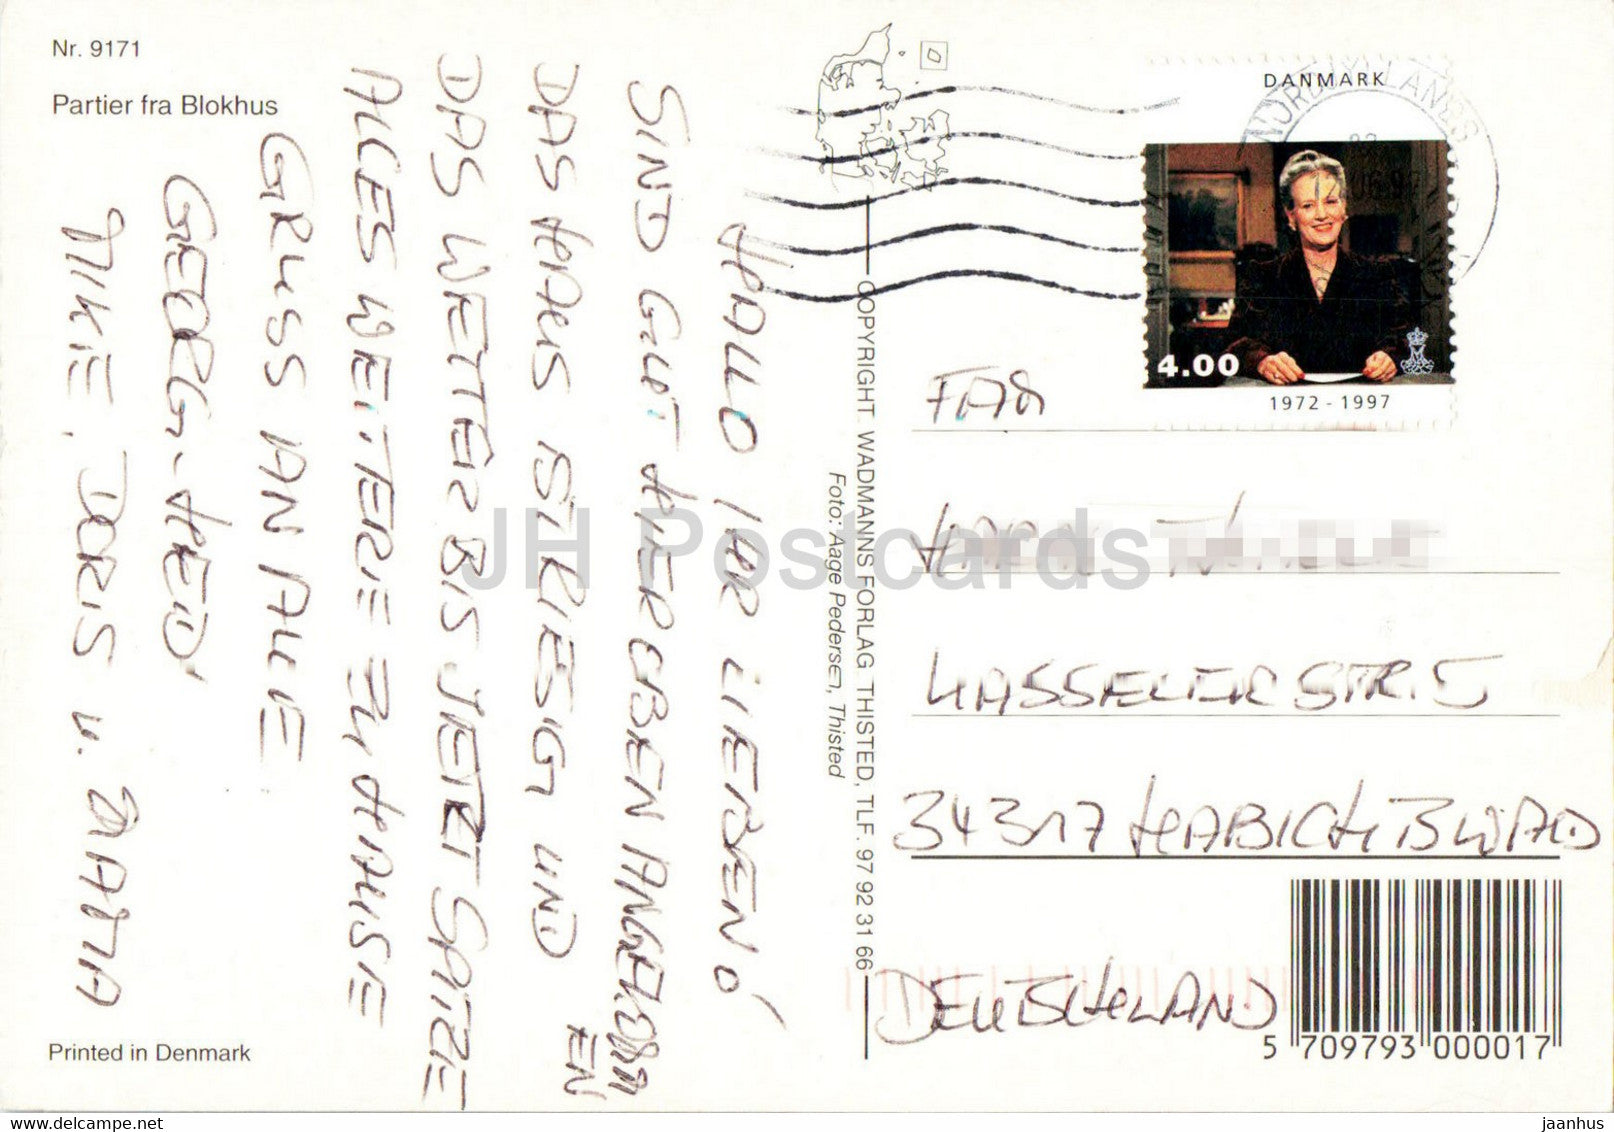 Nr. 9171
Partier fra Blokhus
HALLO IHR LIEBEN!
SIND GUT HIER OBEN ANGEKOMM
EN
DAS HAUS IST RIESIG UND
DAS WETTER BIS JETZT SPITZE
ALLES WEITERE ZU HAUSE
GRUSS AN ALLE
GEORG-HEID
MIKE, DORIS U.
Printed in Denmark
COPYRIGHT. WADMANNS FORLAG THISTED, TLF. 97 92 31 66
Foto: Aage Pedersen, Thisted
DANMARK
4.00
1972 - 1997
NORDJYLLANDS
FAM
KASSELER STR. 5
34317 HABICHTSWALD
DEUTSCHLAND
5 709793 000017
JH Postcards
www.delcampe.net
jaanhus